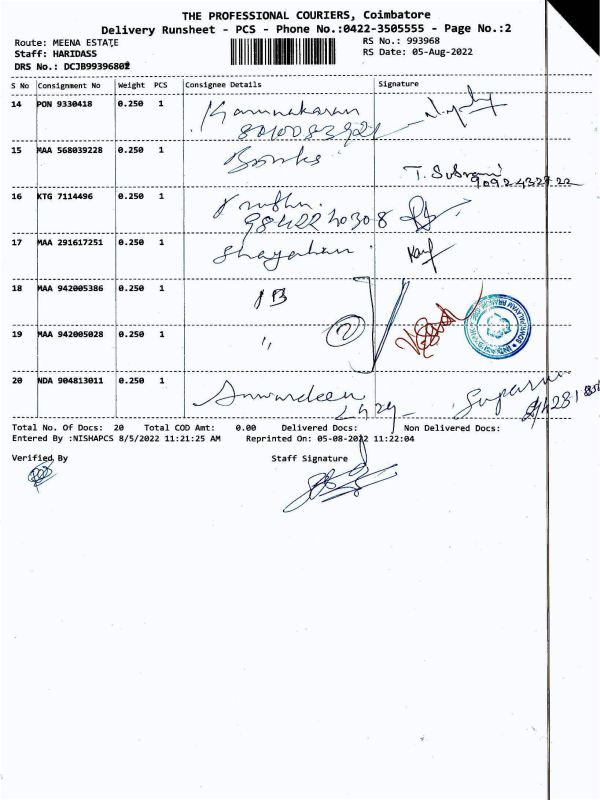 THE PROFESSIONAL COURIERS, Coimbatore
Delivery Runsheet - PCS - Phone No.:0422-3505555 - Page No.:2
Route: MEENA ESTATE
RS No.: 993968
Staff: HARIDASS
RS Date: 05-Aug-2022
DRS No.: DCJB99396802
S No Consignment No Weight PCS Consignee Details Signature
14 PON 9330418 0.250 1
15 MAA 568039228 0.250 1 Books
T. Subrami
9092432722
16 KTG 7114496 0.250 1
9842220308
17 MAA 291617251 0.250 1
18 MAA 942005386 0.250 1 IB
19 MAA 942005028 0.250 1 " 2
20 NDA 904813011 0.250 1 Anwardeen
Total No. Of Docs: 20 Total COD Amt: 0.00 Delivered Docs: Non Delivered Docs:
Entered By :NISHAPCS 8/5/2022 11:21:25 AM Reprinted On: 05-08-2022 11:22:04
Verified By
Staff Signature